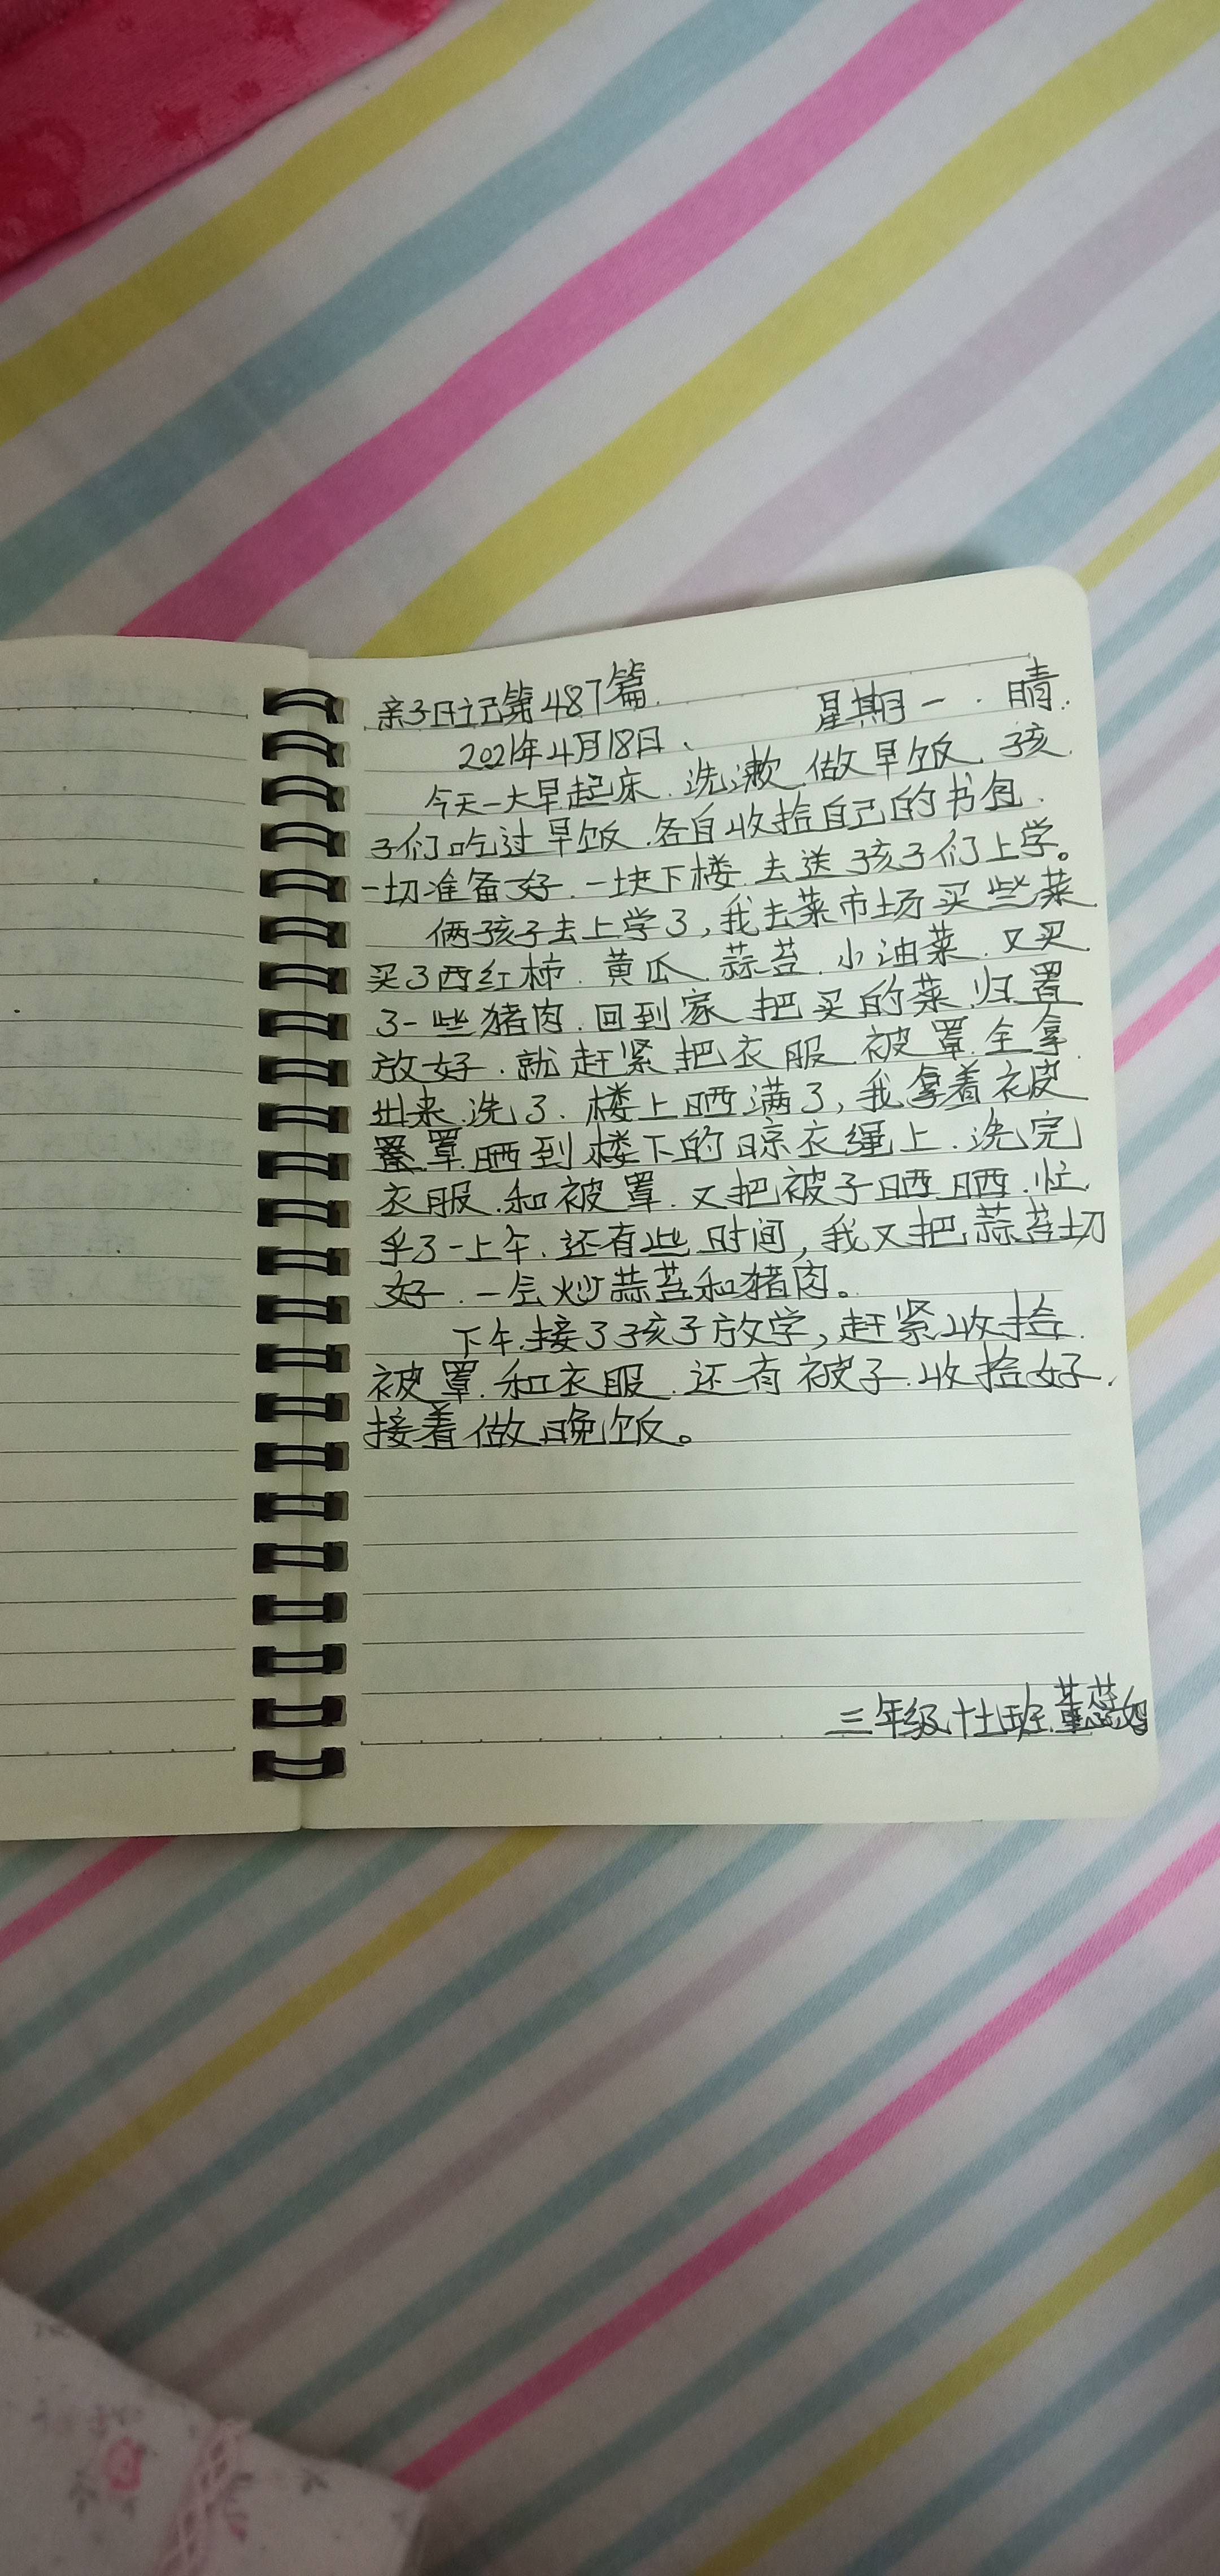 亲子日记第487篇.
2021年4月18日、 星期一.晴.
今天一大早起床.洗漱.做早饭.孩
子们吃过早饭.各自收拾自己的书包.
一切准备好.一块下楼.去送孩子们上学。
俩孩子去上学了,我去菜市场买些菜.
买了西红柿.黄瓜.蒜苔.小油菜.又买
了一些猪肉.回到家把买的菜归置
放好.就赶紧把衣服.被罩全拿
出来洗了.楼上晒满了,我拿着被
罩晒到楼下的晾衣绳上.洗完
衣服.和被罩.又把被子晒晒.忙
乎了一上午.还有些时间,我又把蒜苔切
好.一会炒蒜苔和猪肉。
下午.接了孩子放学,赶紧收拾
被罩.和衣服.还有被子.收拾好.
接着做晚饭。
三年级十七班.董蕊妈